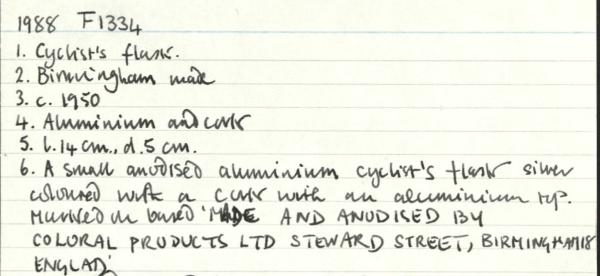 1988 F1334
1. Cyclist's flask.
2. Birmingham made
3. c. 1950
4. Aluminium and cork
5. l. 14 cm., d. 5 cm.
6. A small anodised aluminium cyclist's flask silver
coloured with a cork with an aluminium top.
Marked on base 'MADE AND ANODISED BY
COLORAL PRODUCTS LTD STEWARD STREET, BIRMINGHAM 18
ENGLAD'